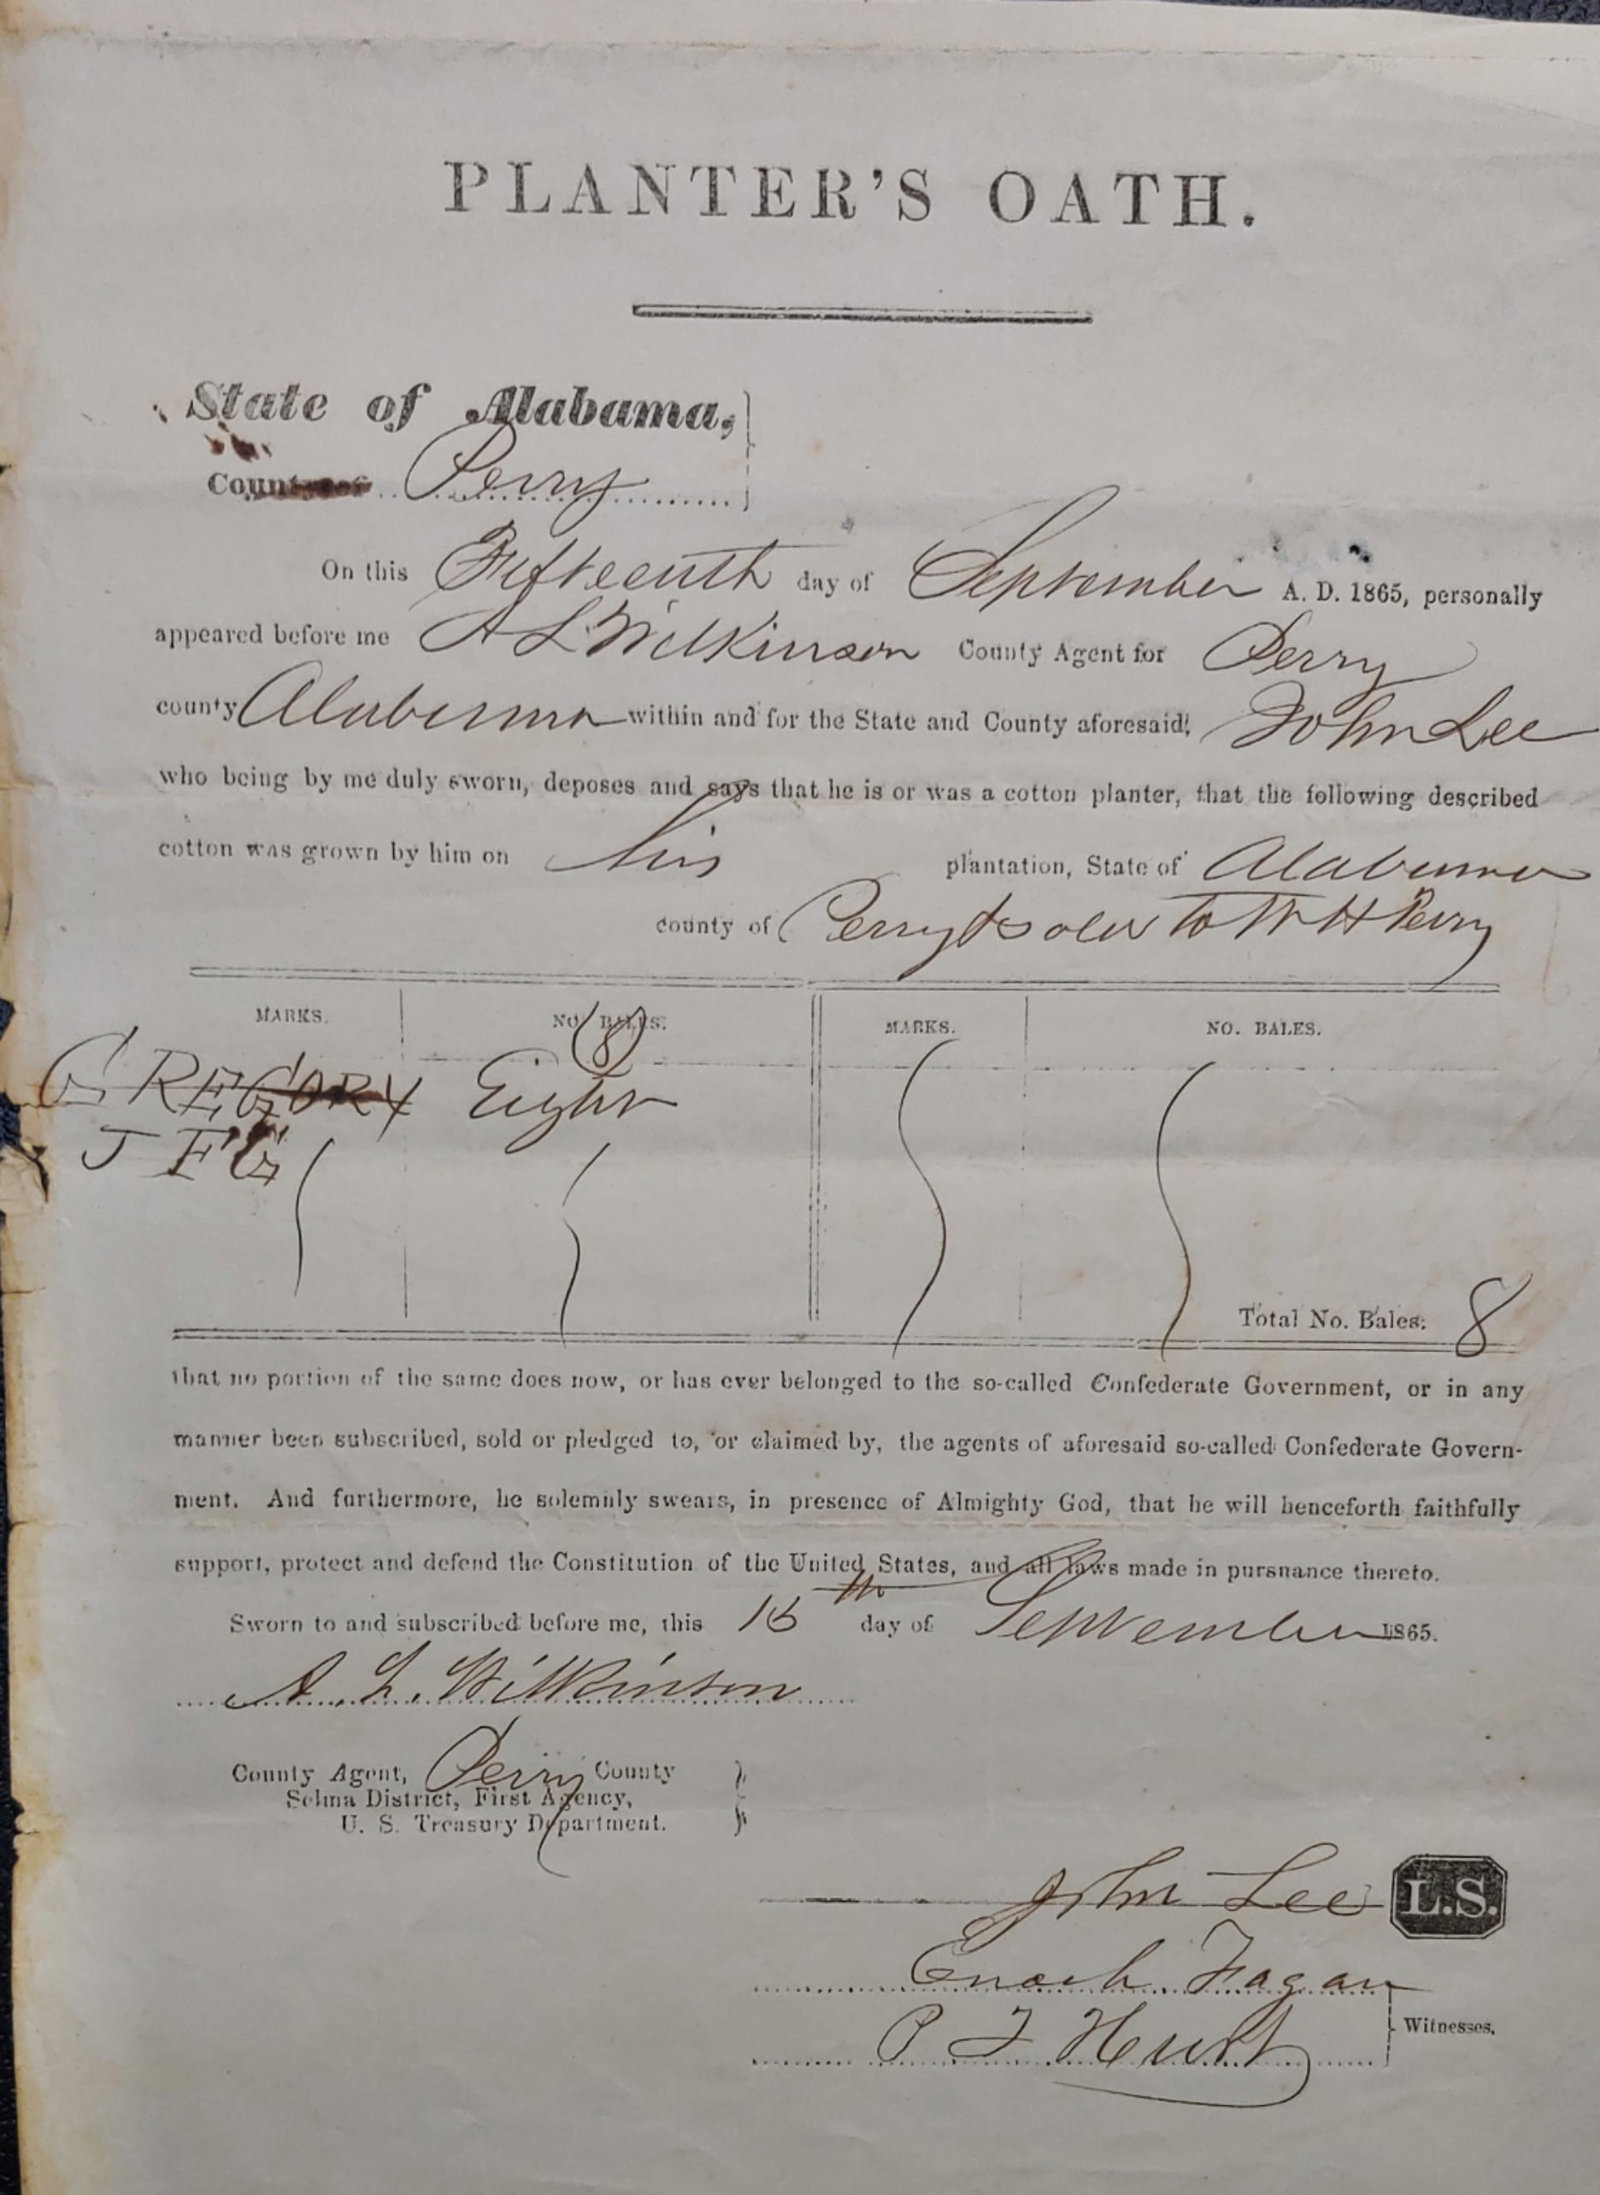 PLANTER'S OATH.
State of Alabama,
County of Perry
On this Fifteenth day of September A. D. 1865, personally
appeared before me A L Wilkinson County Agent for Perry
county Alabama within and for the State and County aforesaid, John Lee
who being by me duly sworn, deposes and says that he is or was a cotton planter, that the following described
cotton was grown by him on his plantation, State of Alabama
county of Perry & sold to W H Perry
MARKS. NO. BALES. MARKS. NO. BALES.
(8)
GREGORY Eight
J F G
Total No. Bales. 8
that no portion of the same does now, or has ever belonged to the so-called Confederate Government, or in any
manner been subscribed, sold or pledged to, or claimed by, the agents of aforesaid so-called Confederate Govern-
ment. And furthermore, he solemnly swears, in presence of Almighty God, that he will henceforth faithfully
support, protect and defend the Constitution of the United States, and all laws made in pursuance thereto.
Sworn to and subscribed before me, this 15th day of September 1865.
A. L. Wilkinson
County Agent, Perry County
Selma District, First Agency,
U. S. Treasury Department.
John Lee L.S.
Enoch Fagan
Witnesses.
P T Hurt